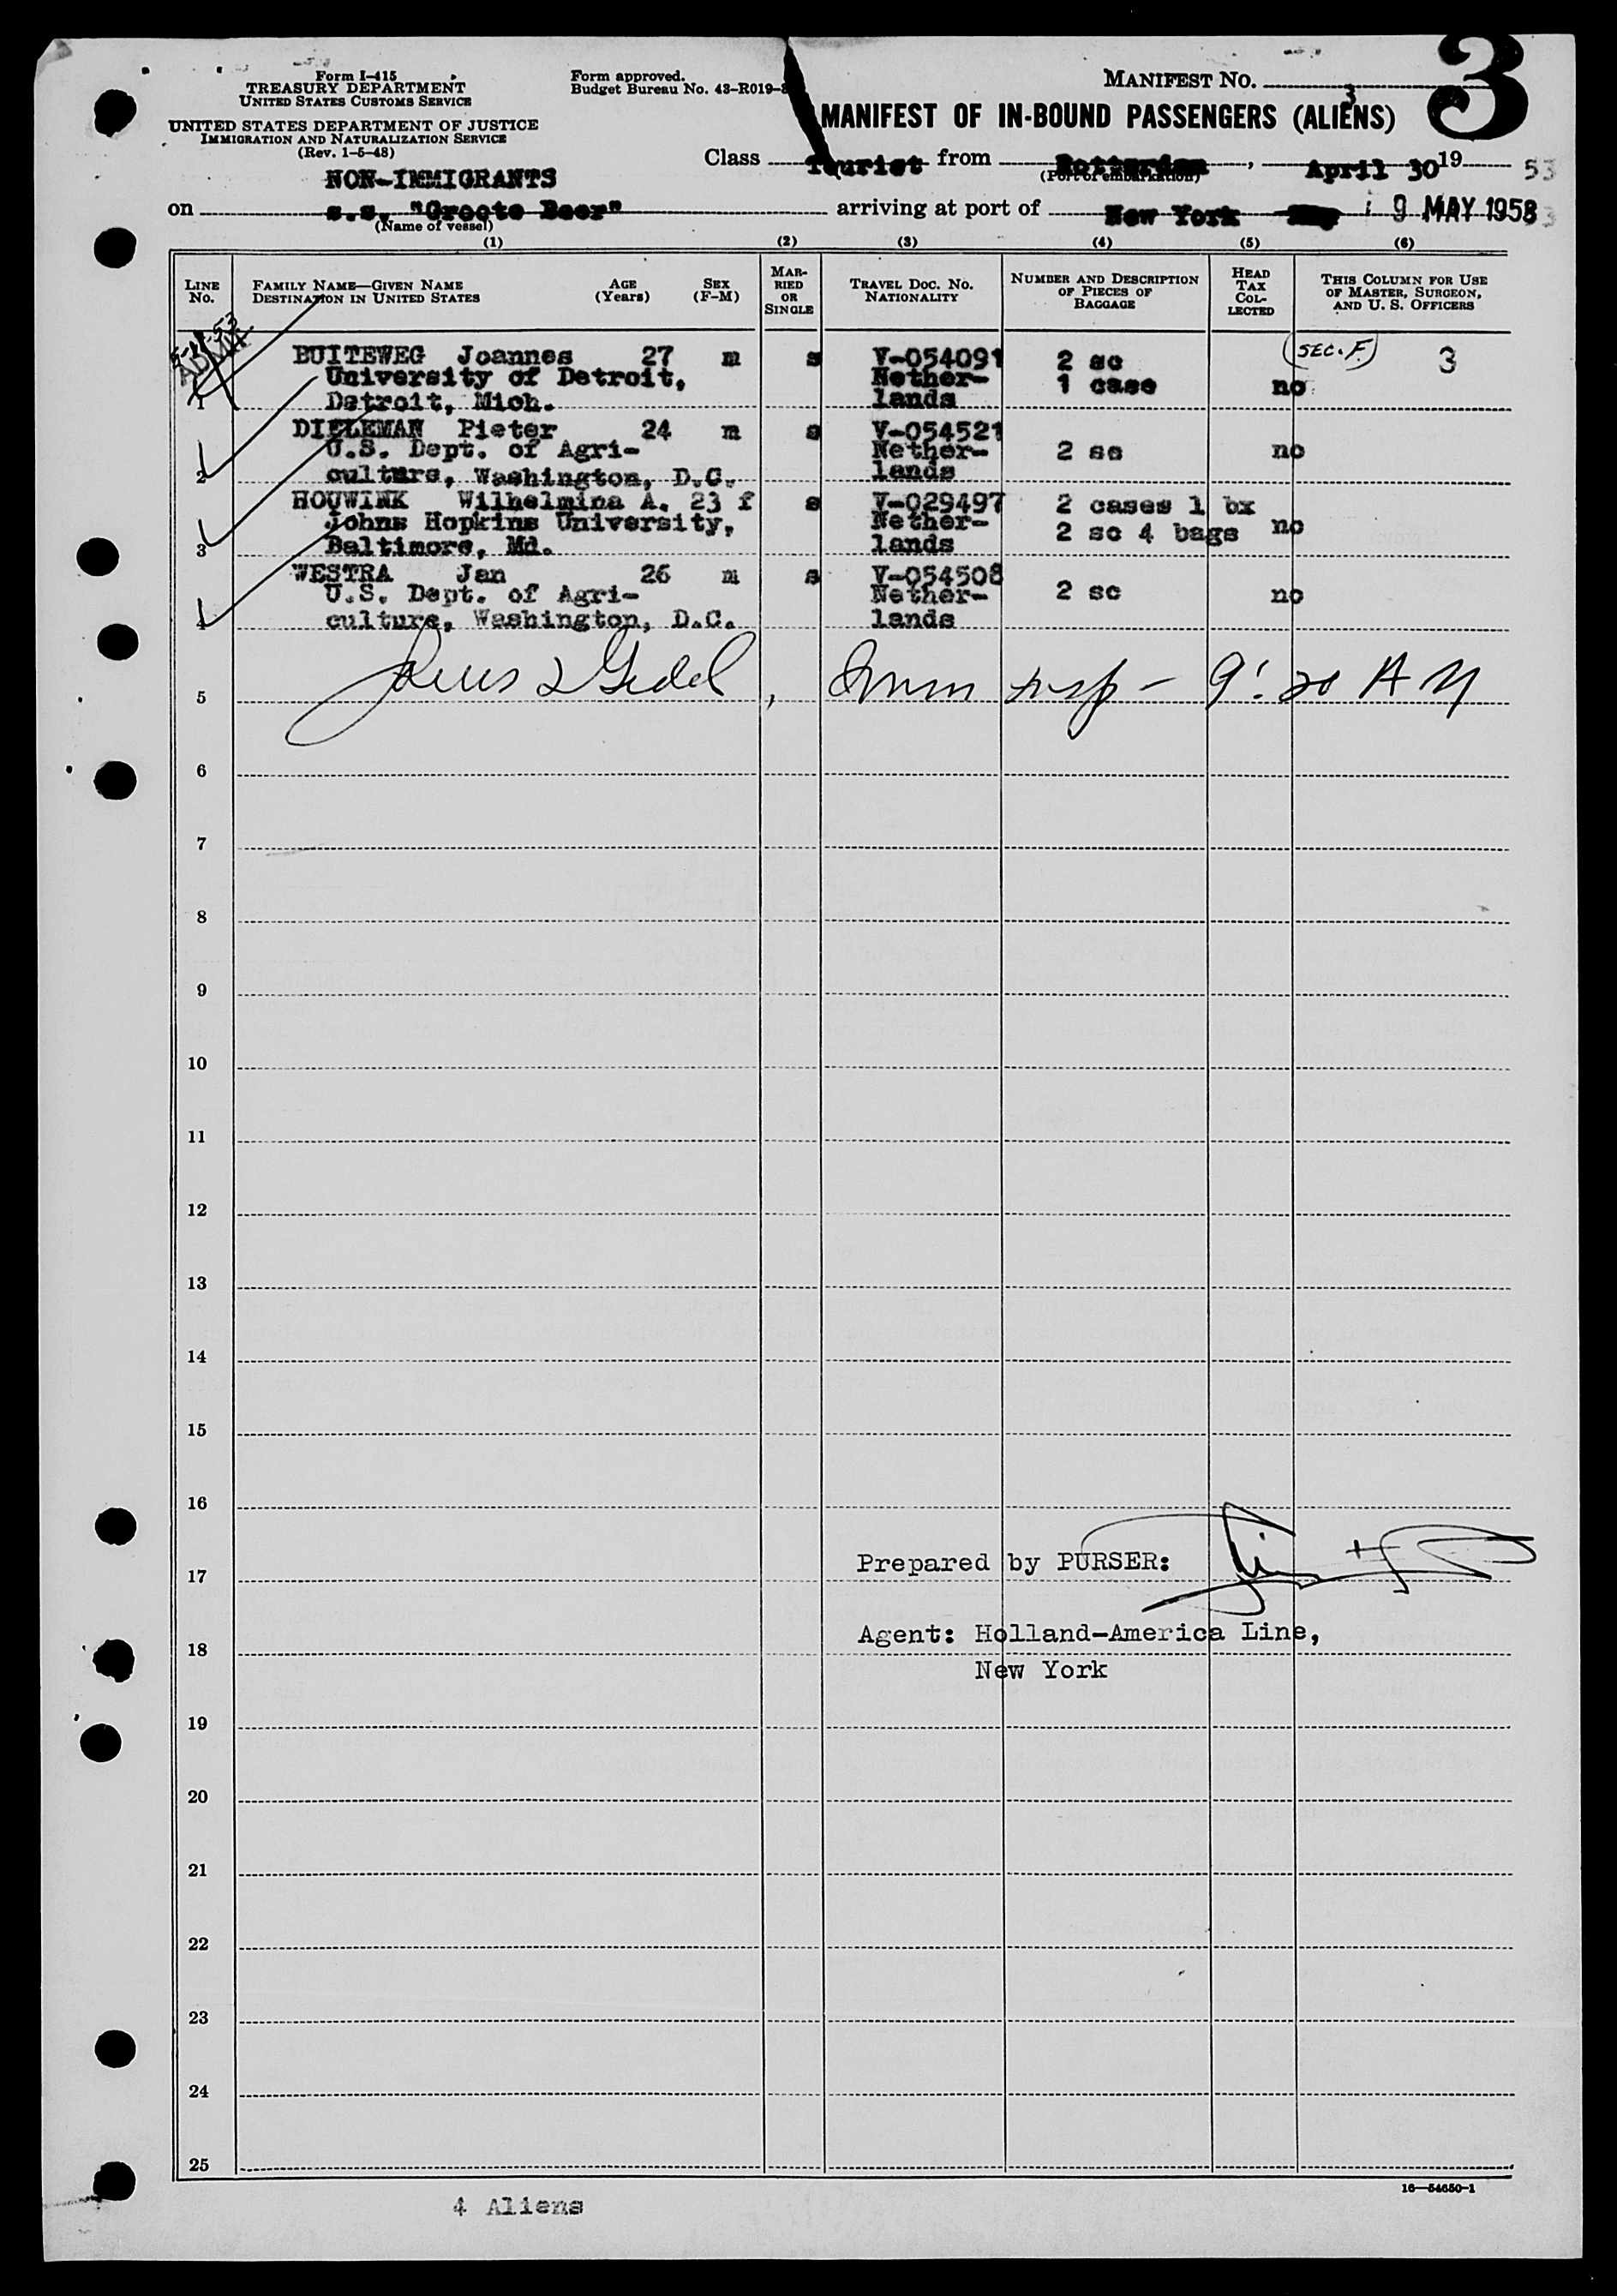 Form I-415
TREASURY DEPARTMENT
UNITED STATES CUSTOMS SERVICE
UNITED STATES DEPARTMENT OF JUSTICE
IMMIGRATION AND NATURALIZATION SERVICE
(Rev. 1-5-48)
Form approved.
Budget Bureau No. 43-R019-
MANIFEST NO. 3
3
MANIFEST OF IN-BOUND PASSENGERS (ALIENS)
Class Tourist from Rotterdam, April 30 19 53
(Port of embarkation)
NON-IMMIGRANTS
on s.s. "Groote Beer" arriving at port of New York May 9 MAY 1953
(Name of vessel)
(1) (2) (3) (4) (5) (6)
LINE NO. FAMILY NAME—GIVEN NAME DESTINATION IN UNITED STATES AGE (Years) SEX (F-M) MARRIED OR SINGLE TRAVEL DOC. NO. NATIONALITY NUMBER AND DESCRIPTION OF PIECES OF BAGGAGE HEAD TAX COLLECTED THIS COLUMN FOR USE OF MASTER, SURGEON, AND U. S. OFFICERS
BUITEWEG Joannes 27 m s V-054091 2 sc SEC. F. 3
University of Detroit, Nether- 1 case no
1 Detroit, Mich. lands
DIELEMAN Pieter 24 m s V-054521
U.S. Dept. of Agri- Nether- 2 sc no
2 culture, Washington, D.C. lands
HOUWINK Wilhelmina A. 23 f s V-029497 2 cases 1 bx
Johns Hopkins University, Nether- 2 sc 4 bags no
3 Baltimore, Md. lands
WESTRA Jan 26 m s V-054508
U.S. Dept. of Agri- Nether- 2 sc no
4 culture, Washington, D.C. lands
5 Imm Insp - 9:20 AM
6
7
8
9
10
11
12
13
14
15
16
17 Prepared by PURSER:
18 Agent: Holland-America Line,
New York
19
20
21
22
23
24
25
16—54650-1
4 Aliens